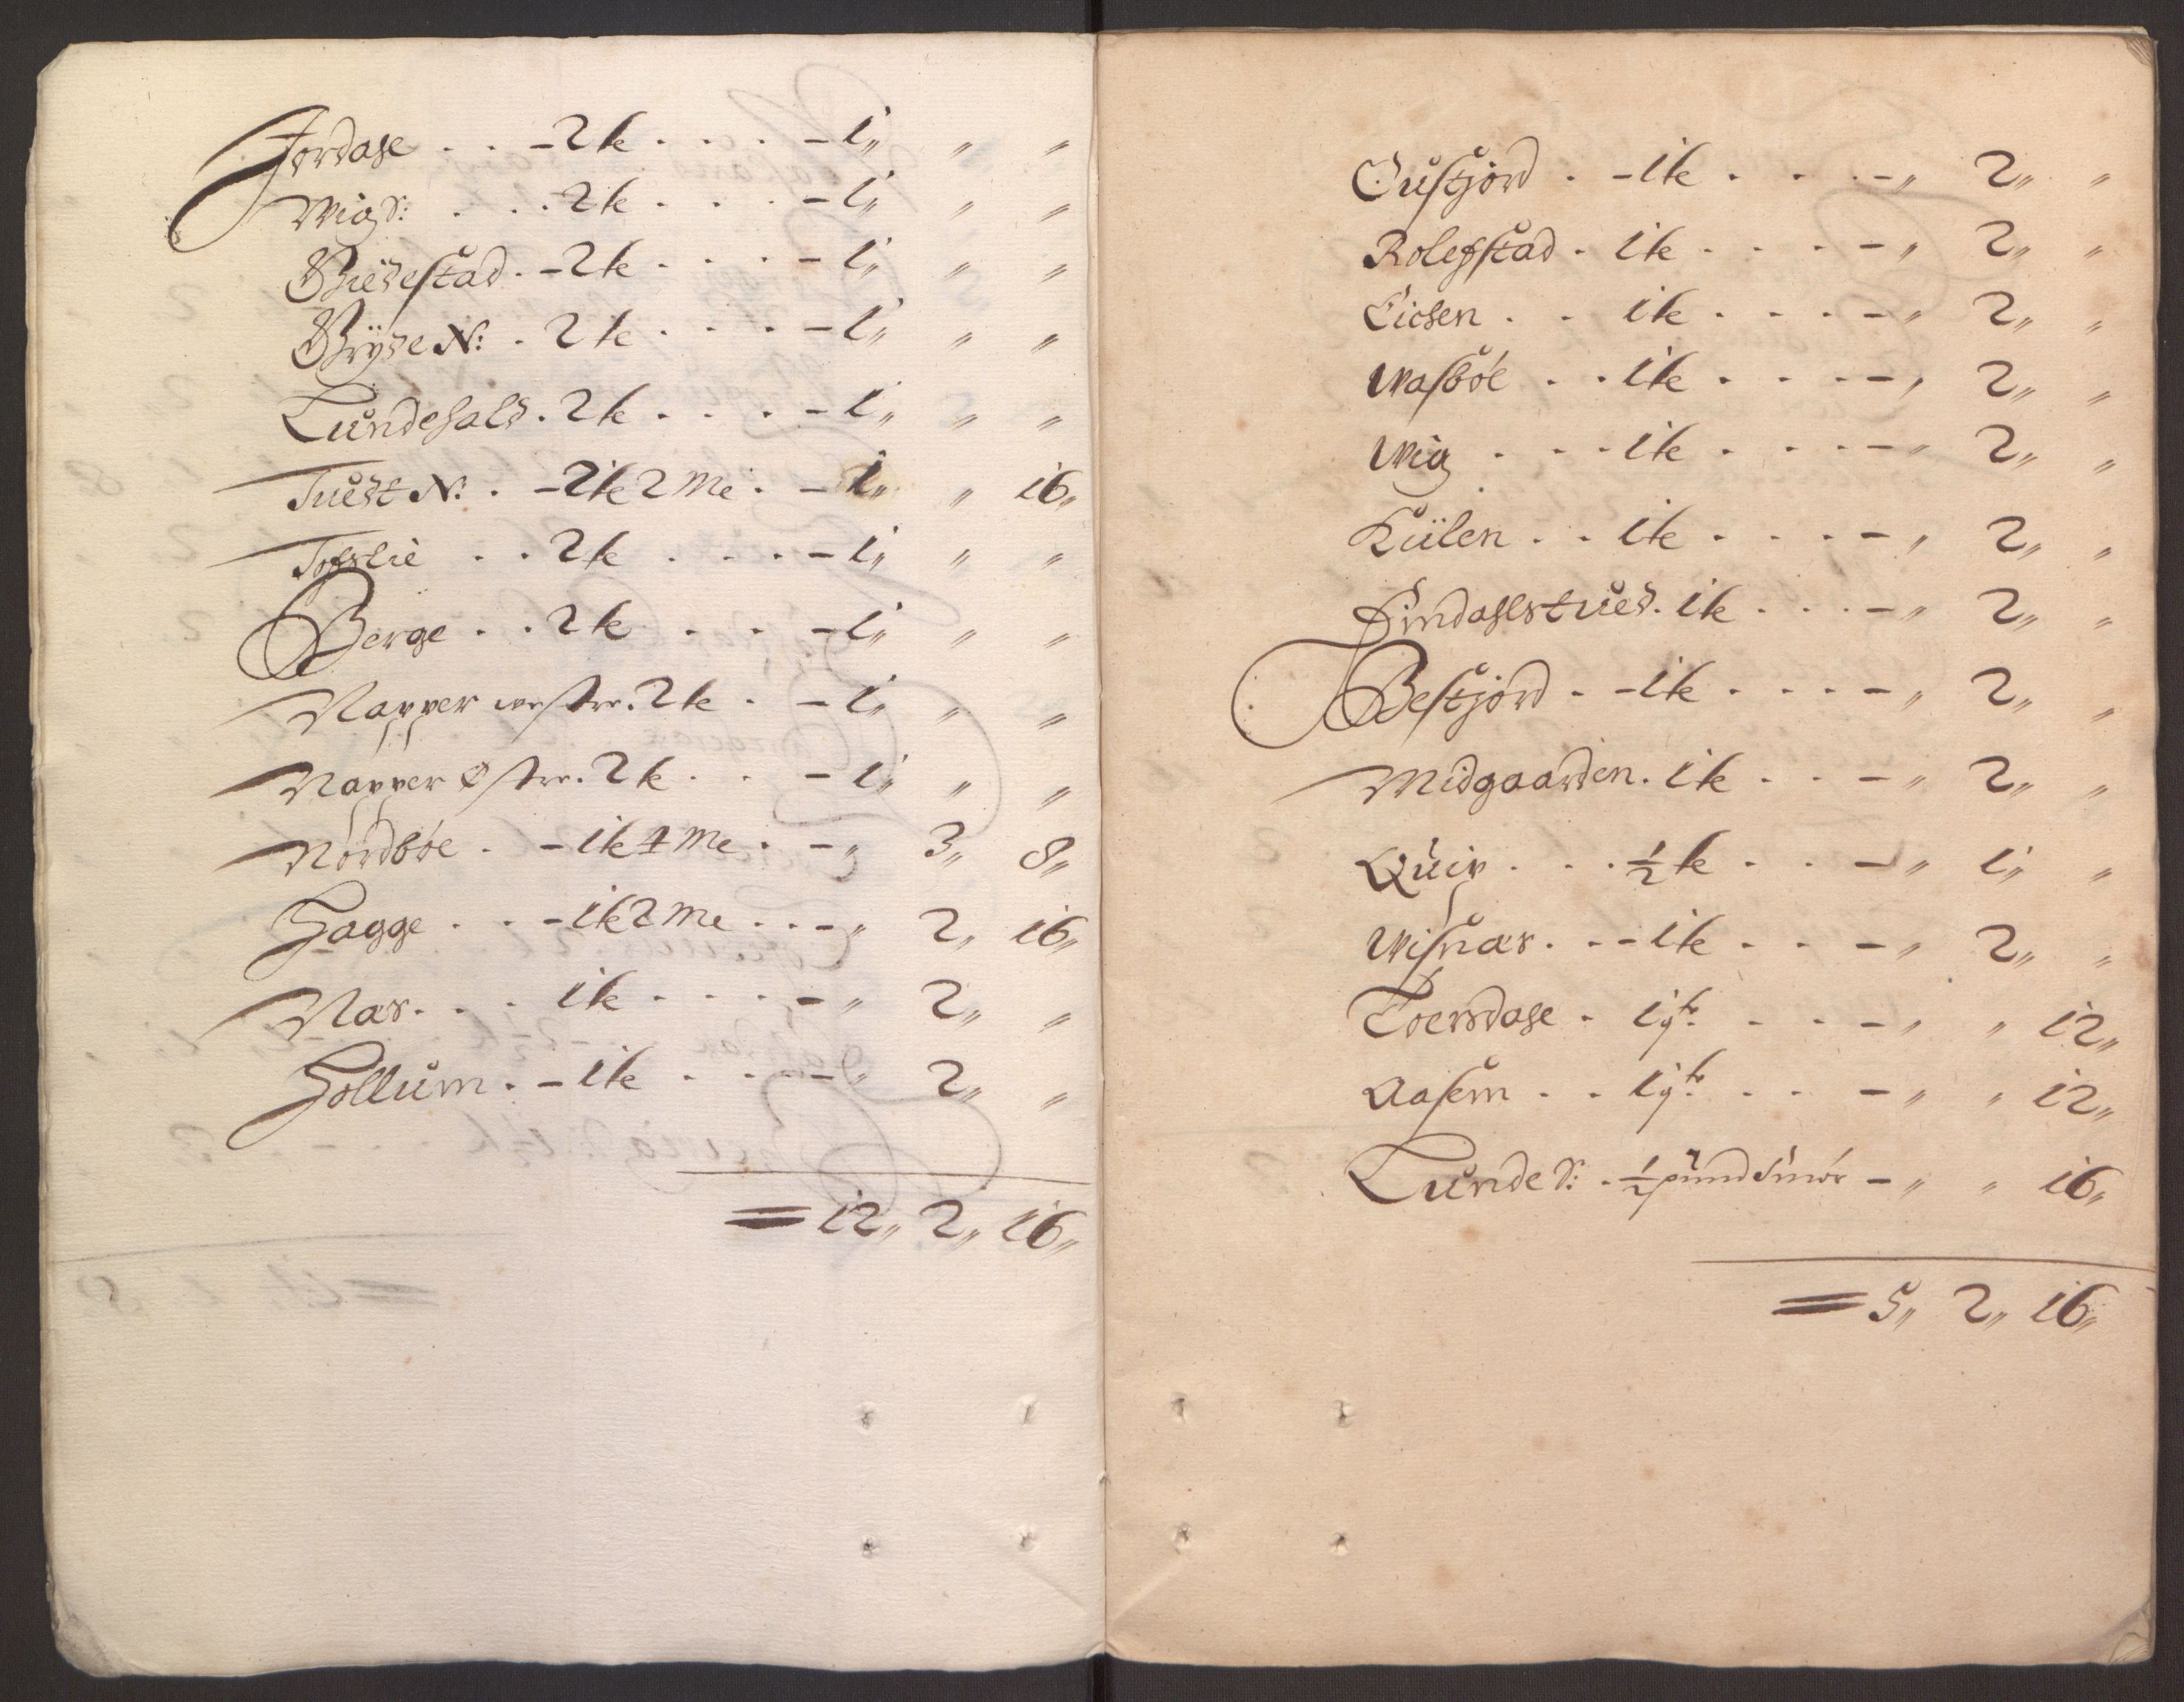 Jordahe . . - 2 k . . . - 1 „ „ „
Wig S: . . . 2 k . . . - 1 „ „ „
Bredestad . - 2 k . . . - 1 „ „ „
Bryde N: . 2 k . . . - 1 „ „ „
Lundehald . 2 k . . . - 1 „ „ „
Tuedt N: . - 2 k 2 me . - 1 „ „ 16 „
Tofslie . . 2 k . . . - 1 „ „ „
Berge . . 2 k . . . - 1 „ „ „
Napper westre . 2 k . - 1 „ „ „
Napper Østre . 2 k . . - 1 „ „ „
Nordbøe . - 1 k 4 me . - „ 3 „ 8 „
Hagge . . - 1 k 2 me . . - „ 2 „ 16 „
Næs . . . 1 k . . . - „ 2 „ „
Hollum . - 1 k . . . - „ 2 „ „
= 12 „ 2 „ 16 „
Oustjord . - 1 k . . . - „ 2 „ „
Rolefstad . 1 k . . . - „ 2 „ „
Eichen . . 1 k . . . - „ 2 „ „
Wasbøe . . 1 k . . . - „ 2 „ „
Wig . . . 1 k . . . - „ 2 „ „
Kiilen . . 1 k . . . - „ 2 „ „
1 k . . . - „ 2 „ „
Bestjord . - 1 k . . . - „ 2 „ „
Midgaarden . 1 k . . - „ 2 „ „
Quip . . . ½ k . . - „ 1 „ „
Wisnæs . . - 1 k . . - „ 2 „ „
Toersdahe . 1 gh . . . - „ „ 12 „
Aasem . . 1 gh . . . - „ „ 12 „
Lunde S: . ½ pund Smör - „ „ 16 „
= 5 „ 2 „ 16 „